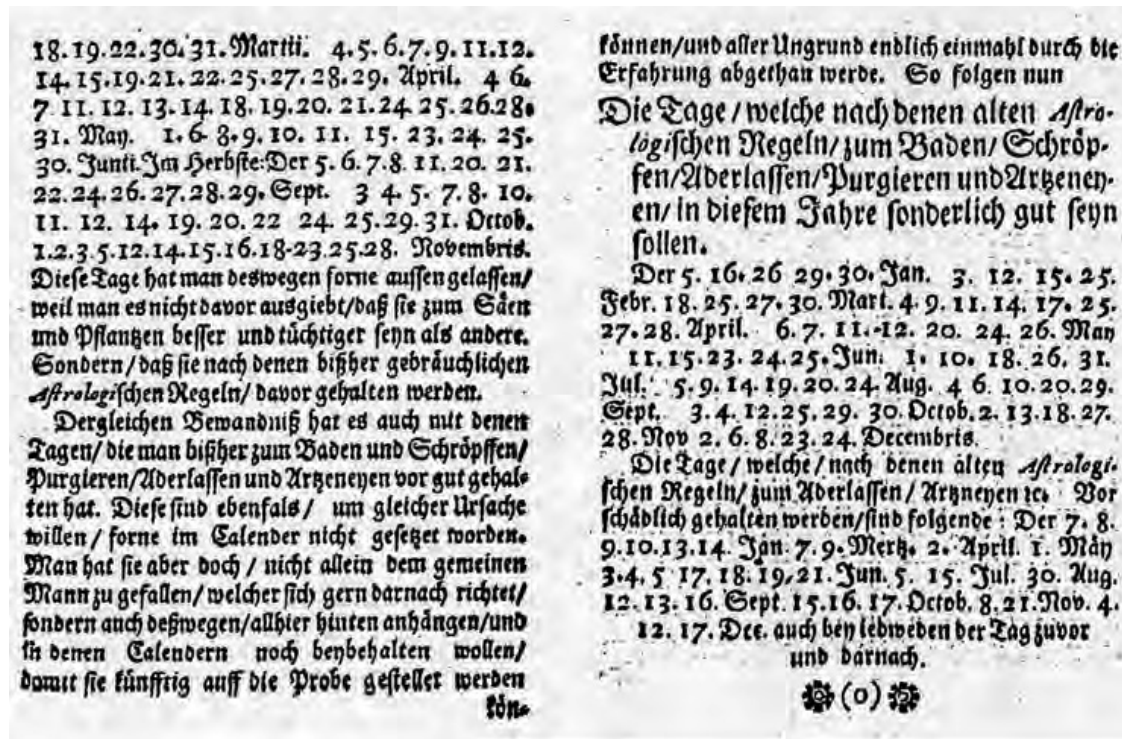 18. 19. 22. 30. 31. Martii. 4. 5. 6. 7. 9. 11. 12.
14. 15. 19. 21. 22. 25. 27. 28. 29. April. 4 6.
7 11. 12. 13. 14. 18. 19. 20. 21. 24 25. 26. 28.
31. May. 1. 6. 8. 9. 10. 11. 15. 23. 24. 25.
30. Junii. Im Herbste: Der 5. 6. 7. 8. 11. 20. 21.
22. 24. 26. 27. 28. 29. Sept. 3 4. 5. 7. 8. 10.
11. 12. 14. 19. 20. 22 24. 25. 29. 31. Octob.
1. 2. 3 5. 12. 14. 15. 16. 18-23. 25. 28. Novembris.
Diese Tage hat man deswegen forne aussen gelassen/
weil man es nicht davor ausgiebt/daß sie zum Säen
und Pflantzen besser und tüchtiger seyn als andere.
Sondern/ daß sie nach denen bißher gebräuchlichen
Astrologischen Regeln/ davor gehalten werden.
Dergleichen Bewandniß hat es auch mit denen
Tagen/ die man bißher zum Baden und Schröpffen/
Purgieren/Aderlassen und Artzeneyen vor gut gehal-
ten hat. Diese sind ebenfals/ um gleicher Ursache
willen/ forne im Calender nicht gesetzet worden.
Man hat sie aber doch/ nicht allein dem gemeinen
Mann zu gefallen/ welcher sich gern darnach richtet/
sondern auch deßwegen/allhier hinten anhängen/und
in denen Calendern noch beybehalten wollen/
damit sie künfftig auff die Probe gestellet werden
kön-
können/und aller Ungrund endlich einmahl durch die
Erfahrung abgethan werde. So folgen nun
Die Tage/ welche nach denen alten Astro-
logischen Regeln/ zum Baden/ Schröp-
fen/Aderlassen/Purgieren und Artzeney-
en/ in diesem Jahre sonderlich gut seyn
sollen.
Der 5. 16. 26 29. 30. Jan. 3. 12. 15. 25.
Febr. 18. 25. 27. 30. Mart. 4. 9. 11. 14. 17. 25.
27. 28. April. 6. 7. 11. 12. 20. 24. 26. May
11. 15. 23. 24. 25. Jun. 1. 10. 18. 26. 31.
Jul. 5. 9. 14. 19. 20. 24. Aug. 4 6. 10. 20. 29.
Sept. 3. 4. 12. 25. 29. 30. Octob. 2. 13. 18. 27.
28. Nov 2. 6. 8. 23. 24. Decembris.
Die Tage/ welche/ nach denen alten Astrologi-
schen Regeln/ zum Aderlassen/ Artzneyen ec. Vor
schädlich gehalten werden/sind folgende: Der 7. 8.
9. 10. 13. 14. Jan. 7. 9. Mertz. 2. April. 1. May
3. 4. 5 17. 18. 19, 21. Jun. 5. 15. Jul. 30. Aug.
12. 13. 16. Sept. 15. 16. 17. Octob. 8. 21. Nov. 4.
12. 17. Dec. auch bey iedweden der Tag zuvor
und darnach.
(o)